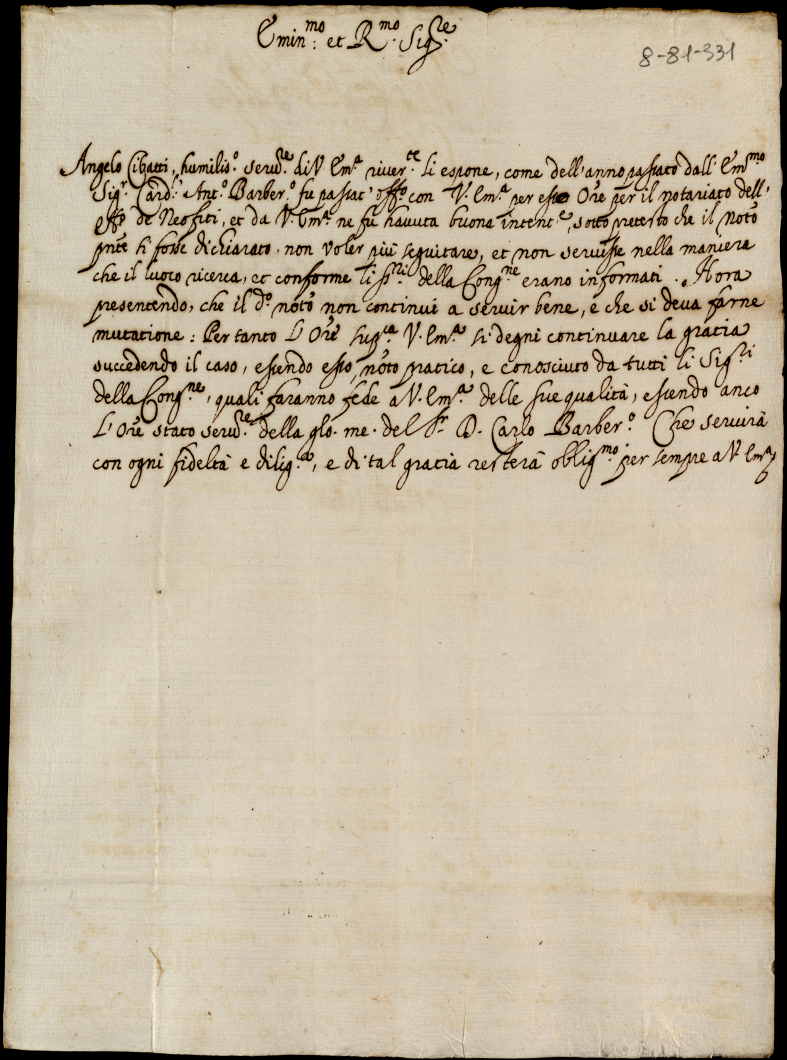 Emin.mo et R.mo Sig.re
8-81-331
Angelo Cibatti, humilis.o serv.re di V. Em.a river.te li espone, come dell'anno passato dall' Em.mo
Sig.r Card.l Ant.o Barber.o fu passat' off.o con V. Em.a per esso Ore per il notariato dell'
off.o de Neofiti, et da V. Em.a ne fu havuta buona intent.e, sotto pretesto che il noto
pnte si fosse dichiarato, non voler più seguitare, et non servisse nella maniera
che il luoco ricerca, et conforme li ss.ri della Cong.ne erano informati. Hora
presentendo, che il d.o noto non continui a servir bene, e che si deva farne
mutatione: Per tanto L' Ore supp.ca V. Em.a si degni continuare la gratia
succedendo il caso, essendo esso noto pratico, e conosciuto da tutti li Sig.ri
della Cong.ne, quali faranno fede a V. Em.a delle sue qualità, essendo anco
L' Ore stato serv.re della glo. me. del Sr. D. Carlo Barber.o Che servirà
con ogni fideltà e dilig.a, e di tal gratia resterà oblig.mo per sempre a V. Em.a